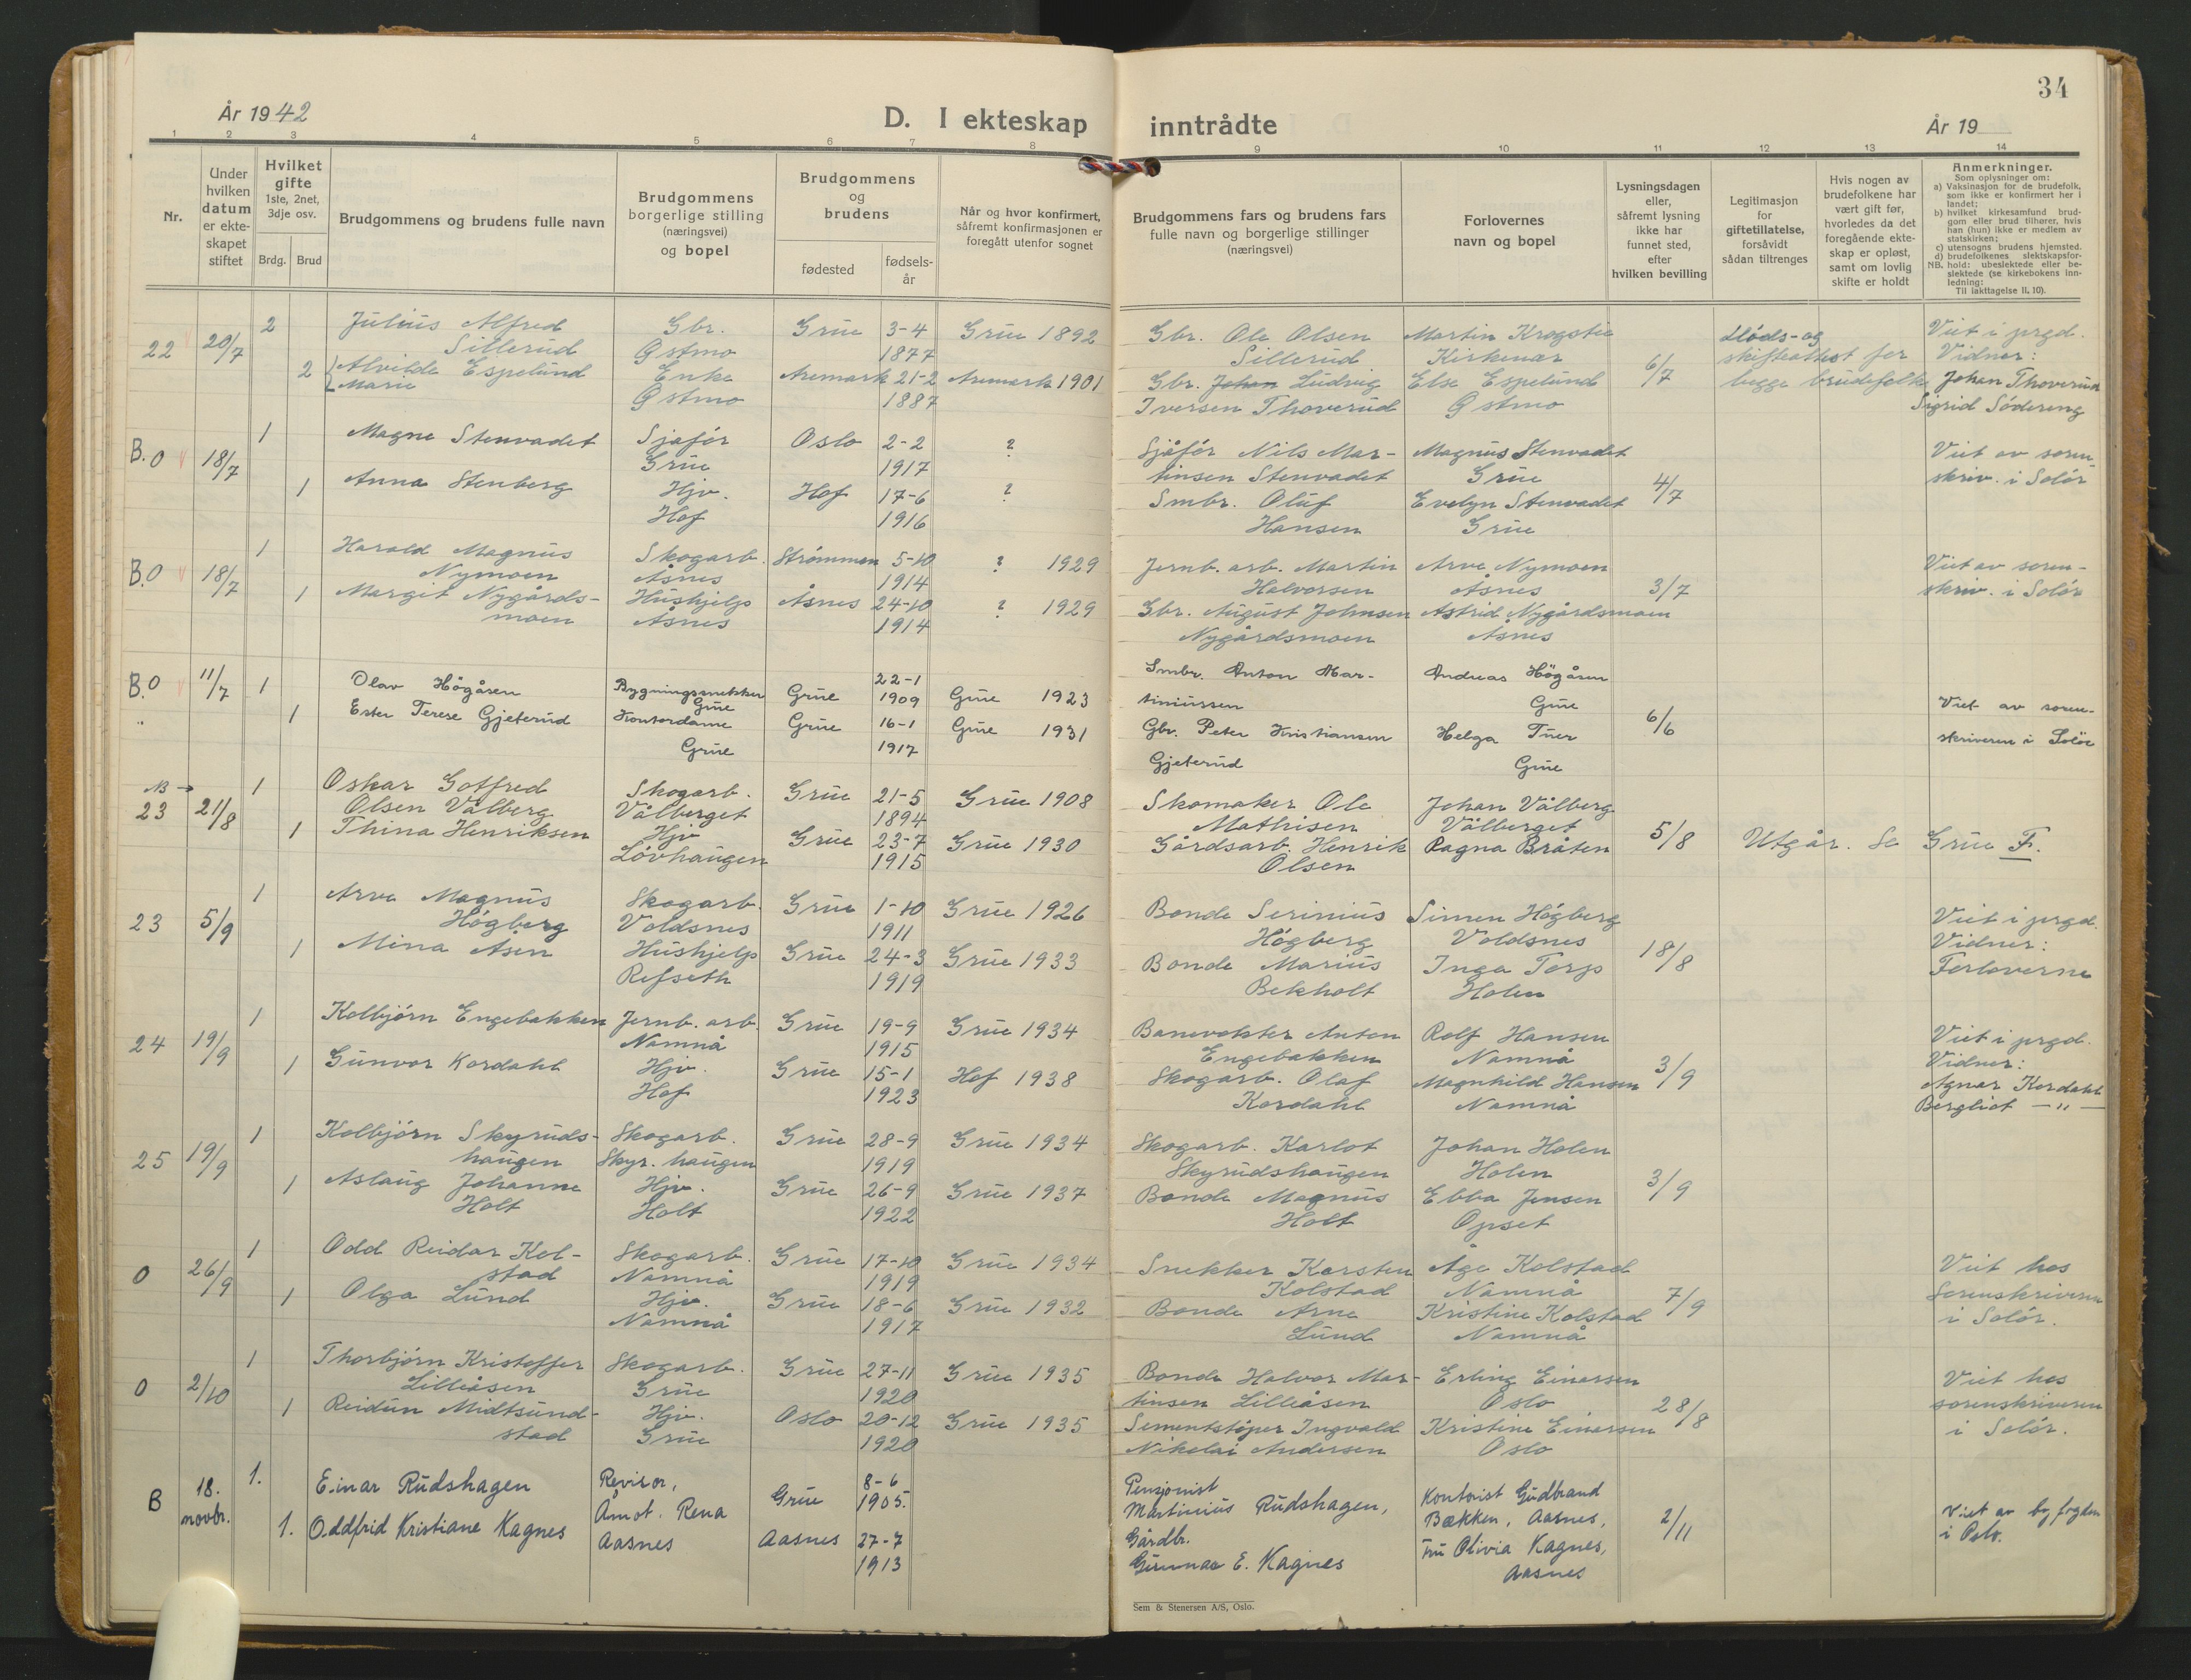 34
År 1942
D. I ekteskap inntrådte
År 19
1 2 3 4 5 6 7 8 9 10 11 12 13 14
Nr.
Under hvilken datum er ekteskapet stiftet
Hvilket gifte 1ste, 2net, 3dje osv.
Brdg. Brud
Brudgommens og brudens fulle navn
Brudgommens borgerlige stilling (næringsvei) og bopel
Brudgommens og brudens
fødested
fødselsår
Når og hvor konfirmert, såfremt konfirmasjonen er foregått utenfor sognet
Brudgommens fars og brudens fars fulle navn og borgerlige stillinger (næringsvei)
Forlovernes navn og bopel
Lysningsdagen eller, såfremt lysning ikke har funnet sted, efter hvilken bevilling
Legitimasjon for giftetillatelse, forsåvidt sådan tiltrenges
Hvis nogen av brudefolkene har vært gift før, hvorledes da det foregående ekteskap er opløst, samt om lovlig skifte er holdt
Anmerkninger.
Som oplysninger om:
a) Vaksinasjon for de brudefolk, som ikke er konfirmert her i landet;
b) hvilket kirkesamfund brudgom eller brud tilhører, hvis han (hun) ikke er medlem av statskirken;
c) utensogns brudens hjemsted.
d) brudefolkenes slektskapsforhold: ubeslektede eller beslektede (se kirkebokens innledning:
NB.
Til iakttagelse II, 10).
22 20/7 2 Julius Alfred Gbr. Grue 3-4 Grue 1892 Gbr. Ole Olsen Martin Krogstie Döds- og Viet i prgd.
Sillerud Östmo 1877 Sillerud Kirkenær 6/7 skifteattest for Vidner:
2 Alvilde Espelund Enke Aremark 21-2 Aremark 1901 Gbr. Johan Ludvig Else Espelund begge brudefolk Johan Thoverud
Marie Östmo 1887 Iversen Thoverud Östmo Sigrid Södereng
B.0 18/7 1 Magne Stenvadet Sjåfør Oslo 2-2 ? Sjåför Nils Mar- Magnus Stenvadet Viet av soren-
Grue 1917 tinsen Stenvadet Grue 4/7 skriv. i Solör
1 Anna Stenberg Hjv. Hof 17-6 ? Smbr. Oluf Evelyn Stenvadet
Hof 1916 Hansen Grue
B.0 18/7 1 Harald Magnus Skogarb. Strömmen 5-10 ? 1929 Jernb. arb. Martin Arve Nymoen Viet av soren-
Nymoen Åsnes 1914 Halvorsen Åsnes 3/7 skriv. i Solör
1 Margit Nygårds- Hushjelp Åsnes 24-10 ? 1929 Gbr. August Johnsen Astrid Nygårdsmoen
moen Åsnes 1914 Nygårdsmoen Åsnes
B.0 11/7 1 Olav Högåsen Bygningssnekker Grue 22-1 1909 Grue 1923 Smbr. Anton Mar- Andreas Högåsen
Grue tiniussen Grue 6/6 Viet av soren-
" 1 Ester Terese Gjeterud Kontordame Grue 16-1 Grue 1931 Gbr. Peter Kristiansen Helga Tuer skriveren i Solör
Grue 1917 Gjeterud Grue
NB →
23 21/8 1 Oskar Gotfred Skogarb. Grue 21-5 Grue 1908 Skomaker Ole Johan Vålberg
Olsen Vålberg Vålberget 1894 Mathisen Vålberget
1 Thina Henriksen Hjv Grue 23-7 Grue 1930 Gårdsarb. Henrik Ragna Bråten 5/8 Utgår. Se Grue F.
Lövhaugen 1915 Olsen
23 5/9 1 Arve Magnus Skogarb. Grue 1-10 Grue 1926 Bonde Serinius Simen Högberg Viet i prgd.
Högberg Voldsnes 1911 Högberg Voldsnes 18/8 Vidner:
1 Mina Åsen Hushjelp Grue 24-3 Grue 1933 Bonde Marius Inga Torp Forloverne
Refseth 1919 Bekholt Holen
24 19/9 1 Kolbjörn Engebakken Jernb. arb. Grue 19-9 Grue 1934 Banevokter Anton Rolf Hansen Viet i prgd.
Namnå 1915 Engebakken Namnå 3/9 Vidner:
1 Gunvor Kordahl Hjv. Grue 15-1 Hof 1938 Skogarb. Olaf Magnhild Hansen Agnar Kordahl
Hof 1923 Kordahl Namnå Bergliot — " —
25 19/9 1 Kolbjörn Skyruds- Skogarb. Grue 28-9 Grue 1934 Skogarb. Karlot Johan Holen
haugen Skyr. haugen 1919 Skyrudshaugen Holen 3/9
1 Aslaug Johanne Hjv. Grue 26-9 Grue 1937 Bonde Magnus Ebba Jensen
Holt Holt 1922 Holt Opset
0 26/9 1 Odd Reidar Kol- Skogarb. Grue 17-10 Grue 1934 Snekker Karsten Åge Kolstad Viet hos
stad Namnå 1919 Kolstad Namnå 7/9 Sorenskriveren
1 Olga Lund Hjv. Grue 18-6 Grue 1932 Bonde Arne Kristine Kolstad i Solör.
Namnå 1917 Lund Namnå
0 2/10 1 Thorbjörn Kristoffer Skogarb. Grue 27-11 Grue 1935 Bonde Halvor Mar- Erling Einarsen Viet hos
Lilleåsen Grue 1920 tinsen Lilleåsen Oslo 28/8 sorenskriveren
1 Reidun Midtsund- Hjv. Oslo 20-12 Grue 1935 Sementstöper Ingvald Kristine Einarsen i Solör.
stad Grue 1920 Nikolai Andersen Oslo
B 18. novbr. 1. Einar Rudshagen Revisor, Grue 8-6 1905. Pensjonist Kontorist Gudbrand
Åmot. Rena Martinius Rudshagen, Bækken, Aasnes, 2/11 Viet av byfogden
1. Oddfrid Kristiane Kagnes Aasnes Aasnes 27-7 Gårdbr. Fru Olivia Kagnes, i Oslo.
1913 Gunnar E. Kagnes Aasnes
Sem & Stenersen A/S, Oslo.